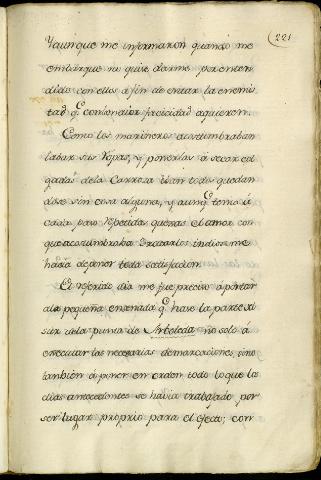 221
Yaunque me informaron quando me
embarque no quise darme por enten
dido con ellos à fin de evitar la enemis
tad q.e con maior facicidad aquieren.
Como los marineros acostumbraban
labar sus Ropas, y ponerlas à secar col
gadas dela Carroza iban todos quedan
dose sin cosa alguna, y aunq.e temia à
cada paso repetidas quexas el amor con
que acostumbraba tratar los indios me
hacia deponer toda satisfaccion.
El referido dia me fue preciso à portar
ala pequeña ensenada q.e hace la parte del
sur dela punta de Arboleda no solo à
executar las necesarias demarcaciones, sino
tambien à poner en orden todo lo que los
dias antecedentes se havia trabajado por
ser lugar proprio para el efecto; con